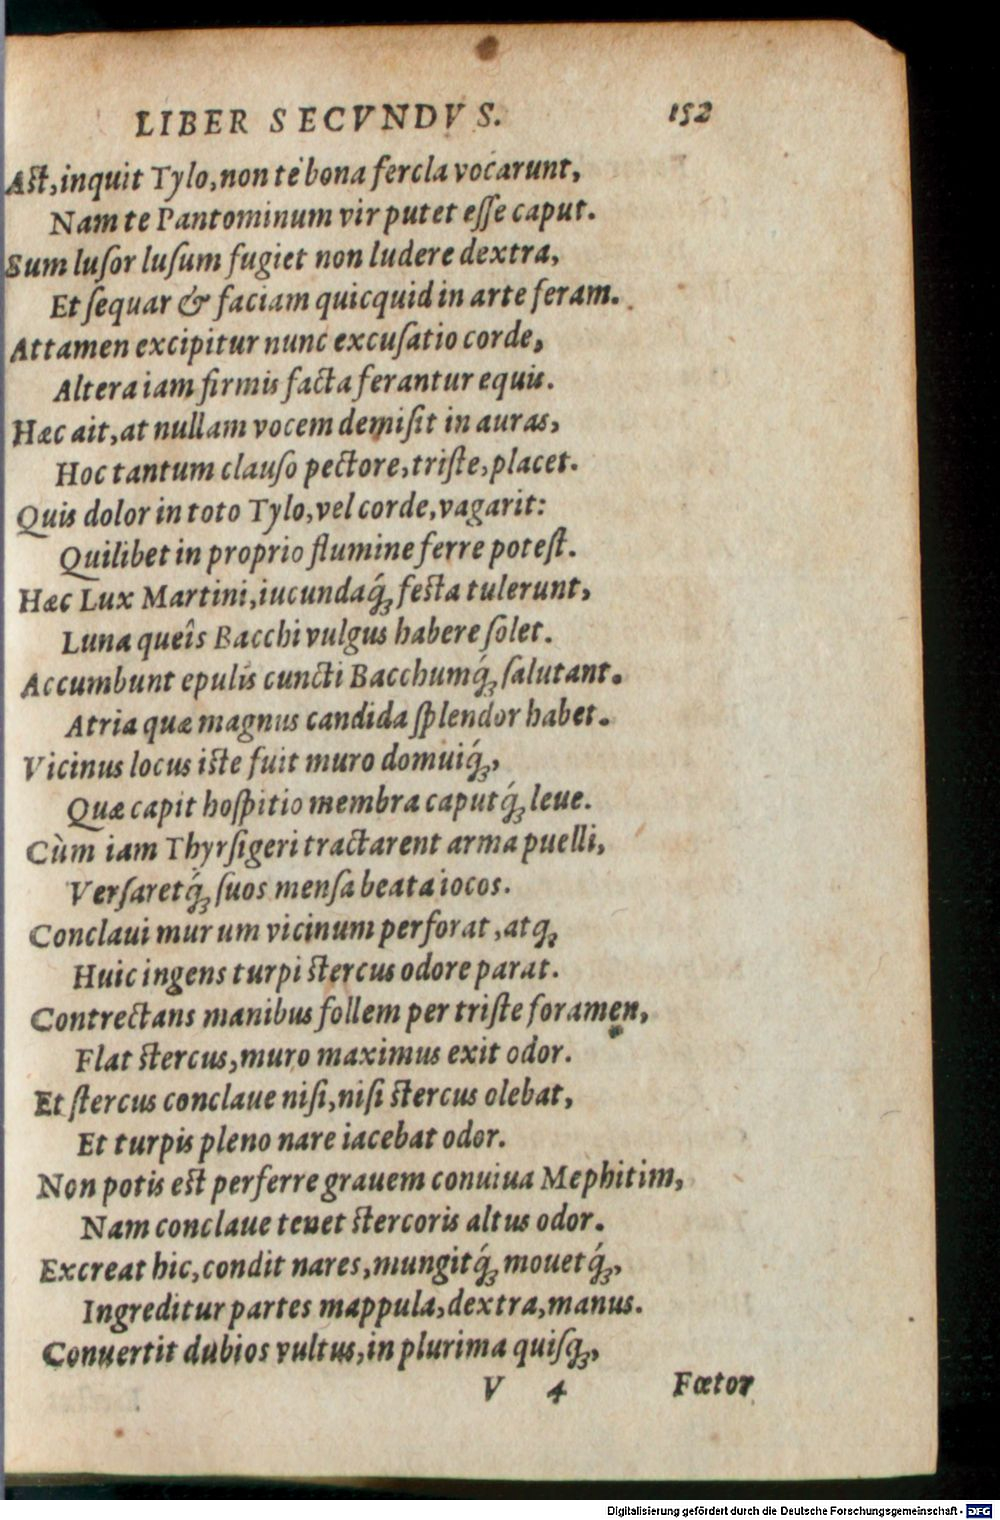 LIBER SECVNDVS. 152
Ast, inquit Tylo, non te bona fercla vocarunt,
Nam te Pantominum vir putet esse caput.
Sum lusor lusum fugiet non ludere dextra,
Et sequar & faciam quicquid in arte feram.
Attamen excipitur nunc excusatio corde,
Altera iam firmis facta ferantur equis.
Hæc ait, at nullam vocem demisit in auras,
Hoc tantum clauso pectore, triste, placet.
Quis dolor in toto Tylo, vel corde, vagarit:
Quilibet in proprio flumine ferre potest.
Hæc Lux Martini, iucundaq́; festa tulerunt,
Luna queîs Bacchi vulgus habere solet.
Accumbunt epulis cuncti Bacchumq́; salutant.
Atria quæ magnus candida splendor habet.
Vicinus locus iste fuit muro domuiq́;,
Quæ capit hospitio membra caputq́; leue.
Cùm iam Thyrsigeri tractarent arma puelli,
Versaretq́; suos mensa beata iocos.
Conclaui murum vicinum perforat, atq;
Huic ingens turpi stercus odore parat.
Contrectans manibus follem per triste foramen,
Flat stercus, muro maximus exit odor.
Et stercus conclaue nisi, nisi stercus olebat,
Et turpis pleno nare iacebat odor.
Non potis est perferre grauem conuiua Mephitim,
Nam conclaue tenet stercoris altus odor.
Excreat hic, condit nares, mungitq́; mouetq́;,
Ingreditur partes mappula, dextra, manus.
Conuertit dubios vultus, in plurima quisq;,
V 4 Fœtor
Digitalisierung gefördert durch die Deutsche Forschungsgemeinschaft - DFG